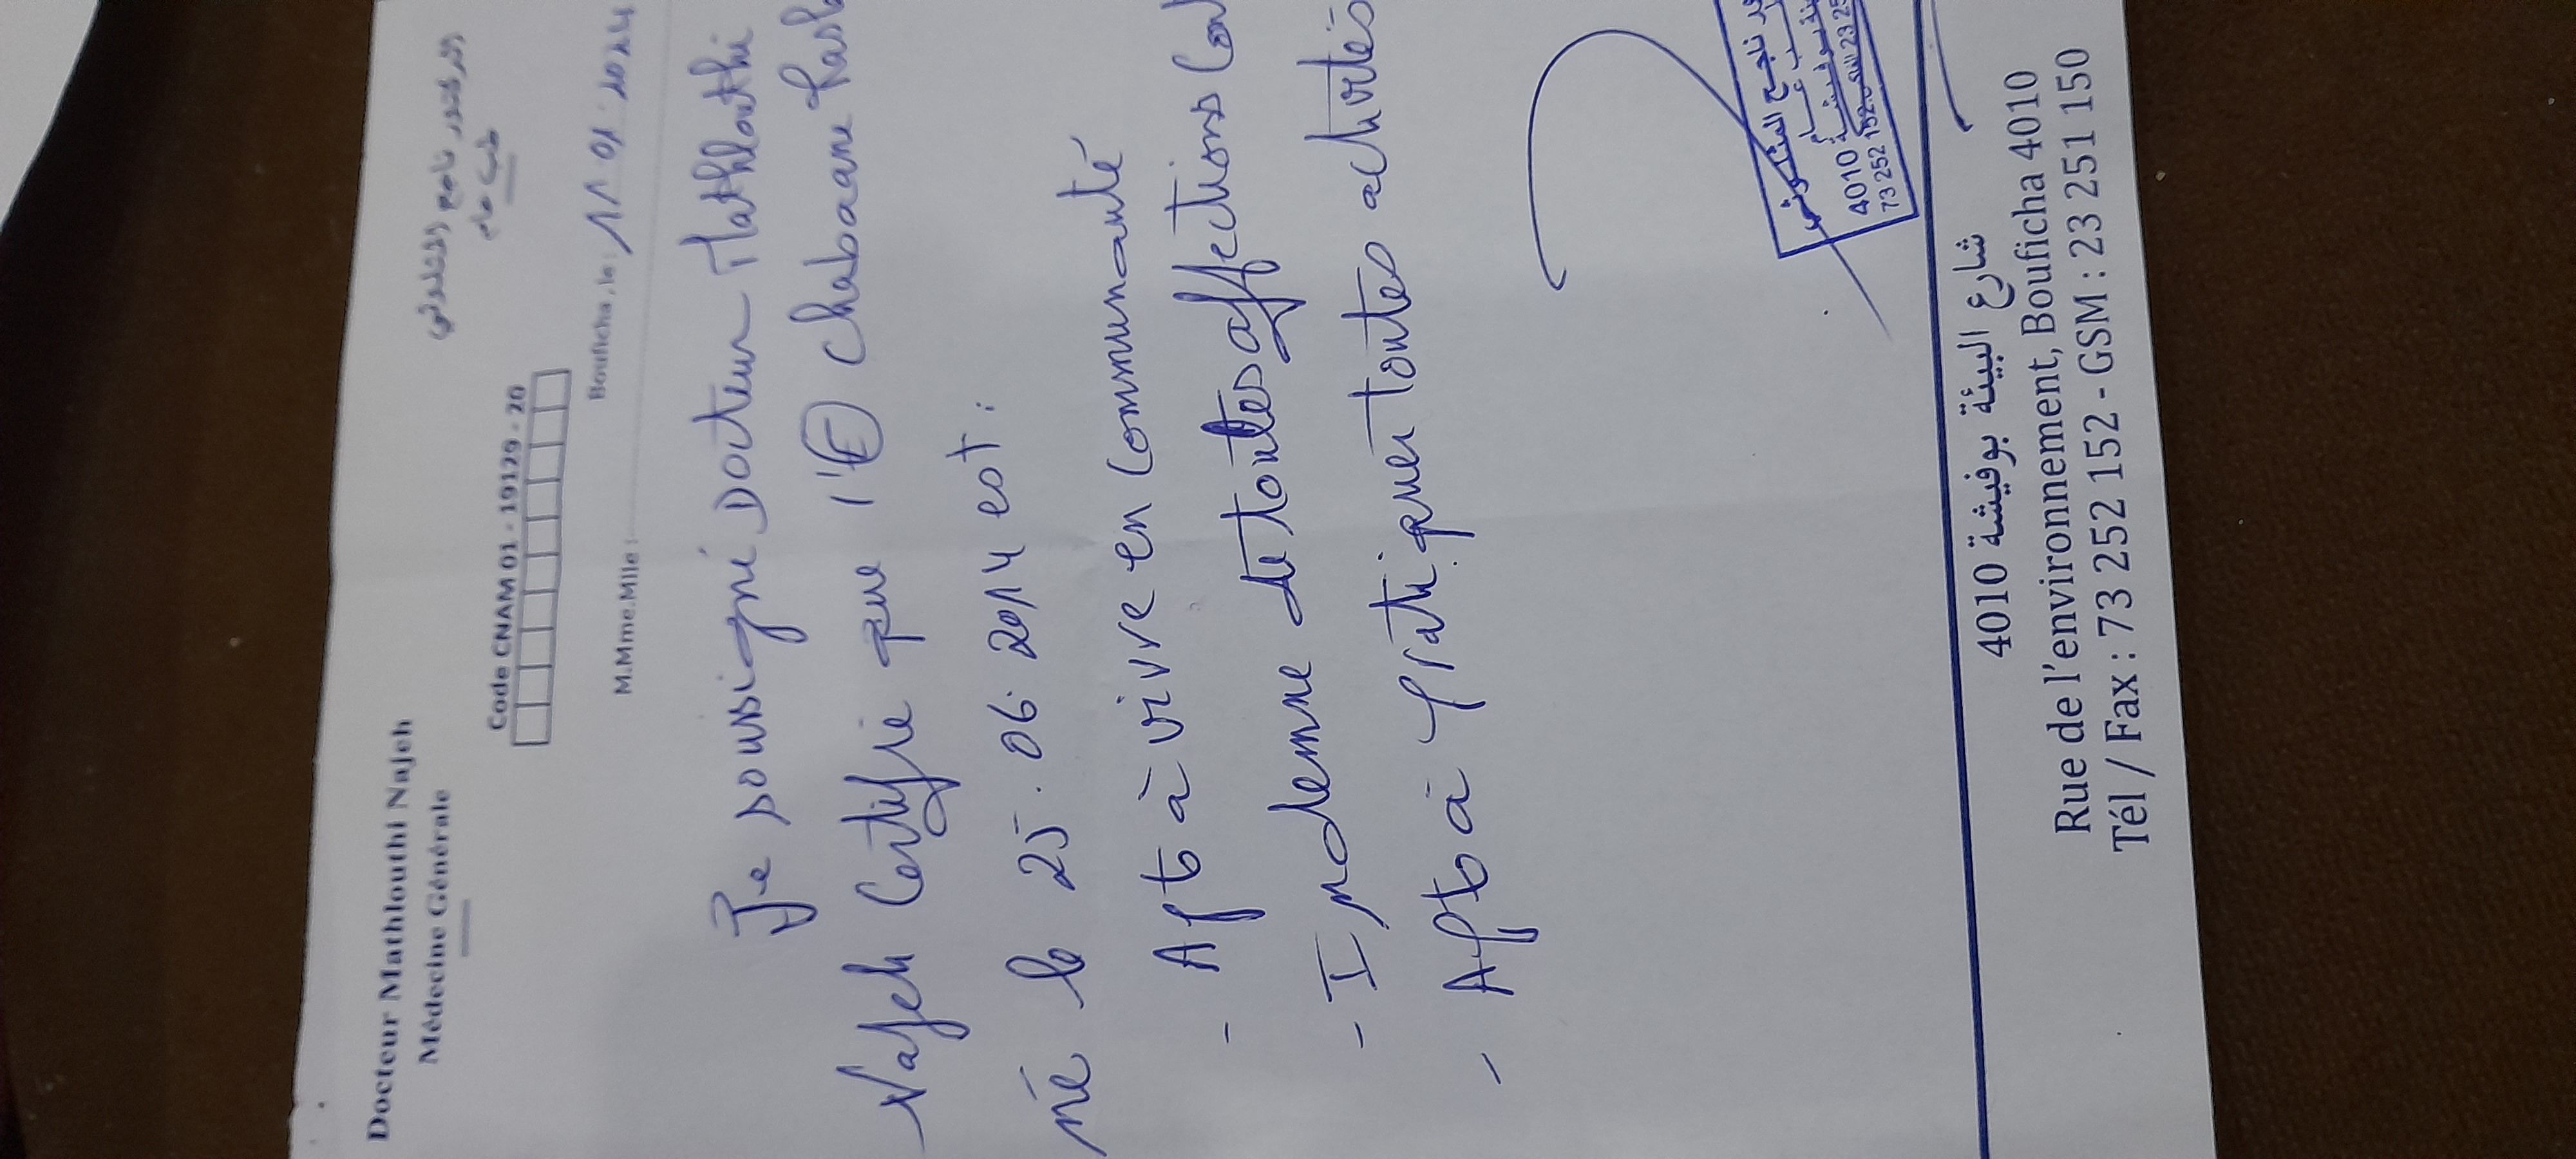 Docteur Mathlouthi Najeh
Médecine Générale
الدكتور ناجح المثلوثي
طب عام
Code CNAM 01 - 19129 - 20
Bouficha, le : 11 01 2024
M.Mme.Mlle :
Je soussigné Docteur Mathlouthi
Najeh Certifie que l'E Chabaane
né le 25. 06. 2014 est :
- Apt à vivre en Communauté
- Indemne de toutes affections Con
- Apt à pratiquer toutes activités
ناجح المثلوثي
4010
73 252 152
شارع البيئة بوفيشة 4010
Rue de l'environnement, Bouficha 4010
Tél / Fax : 73 252 152 - GSM : 23 251 150